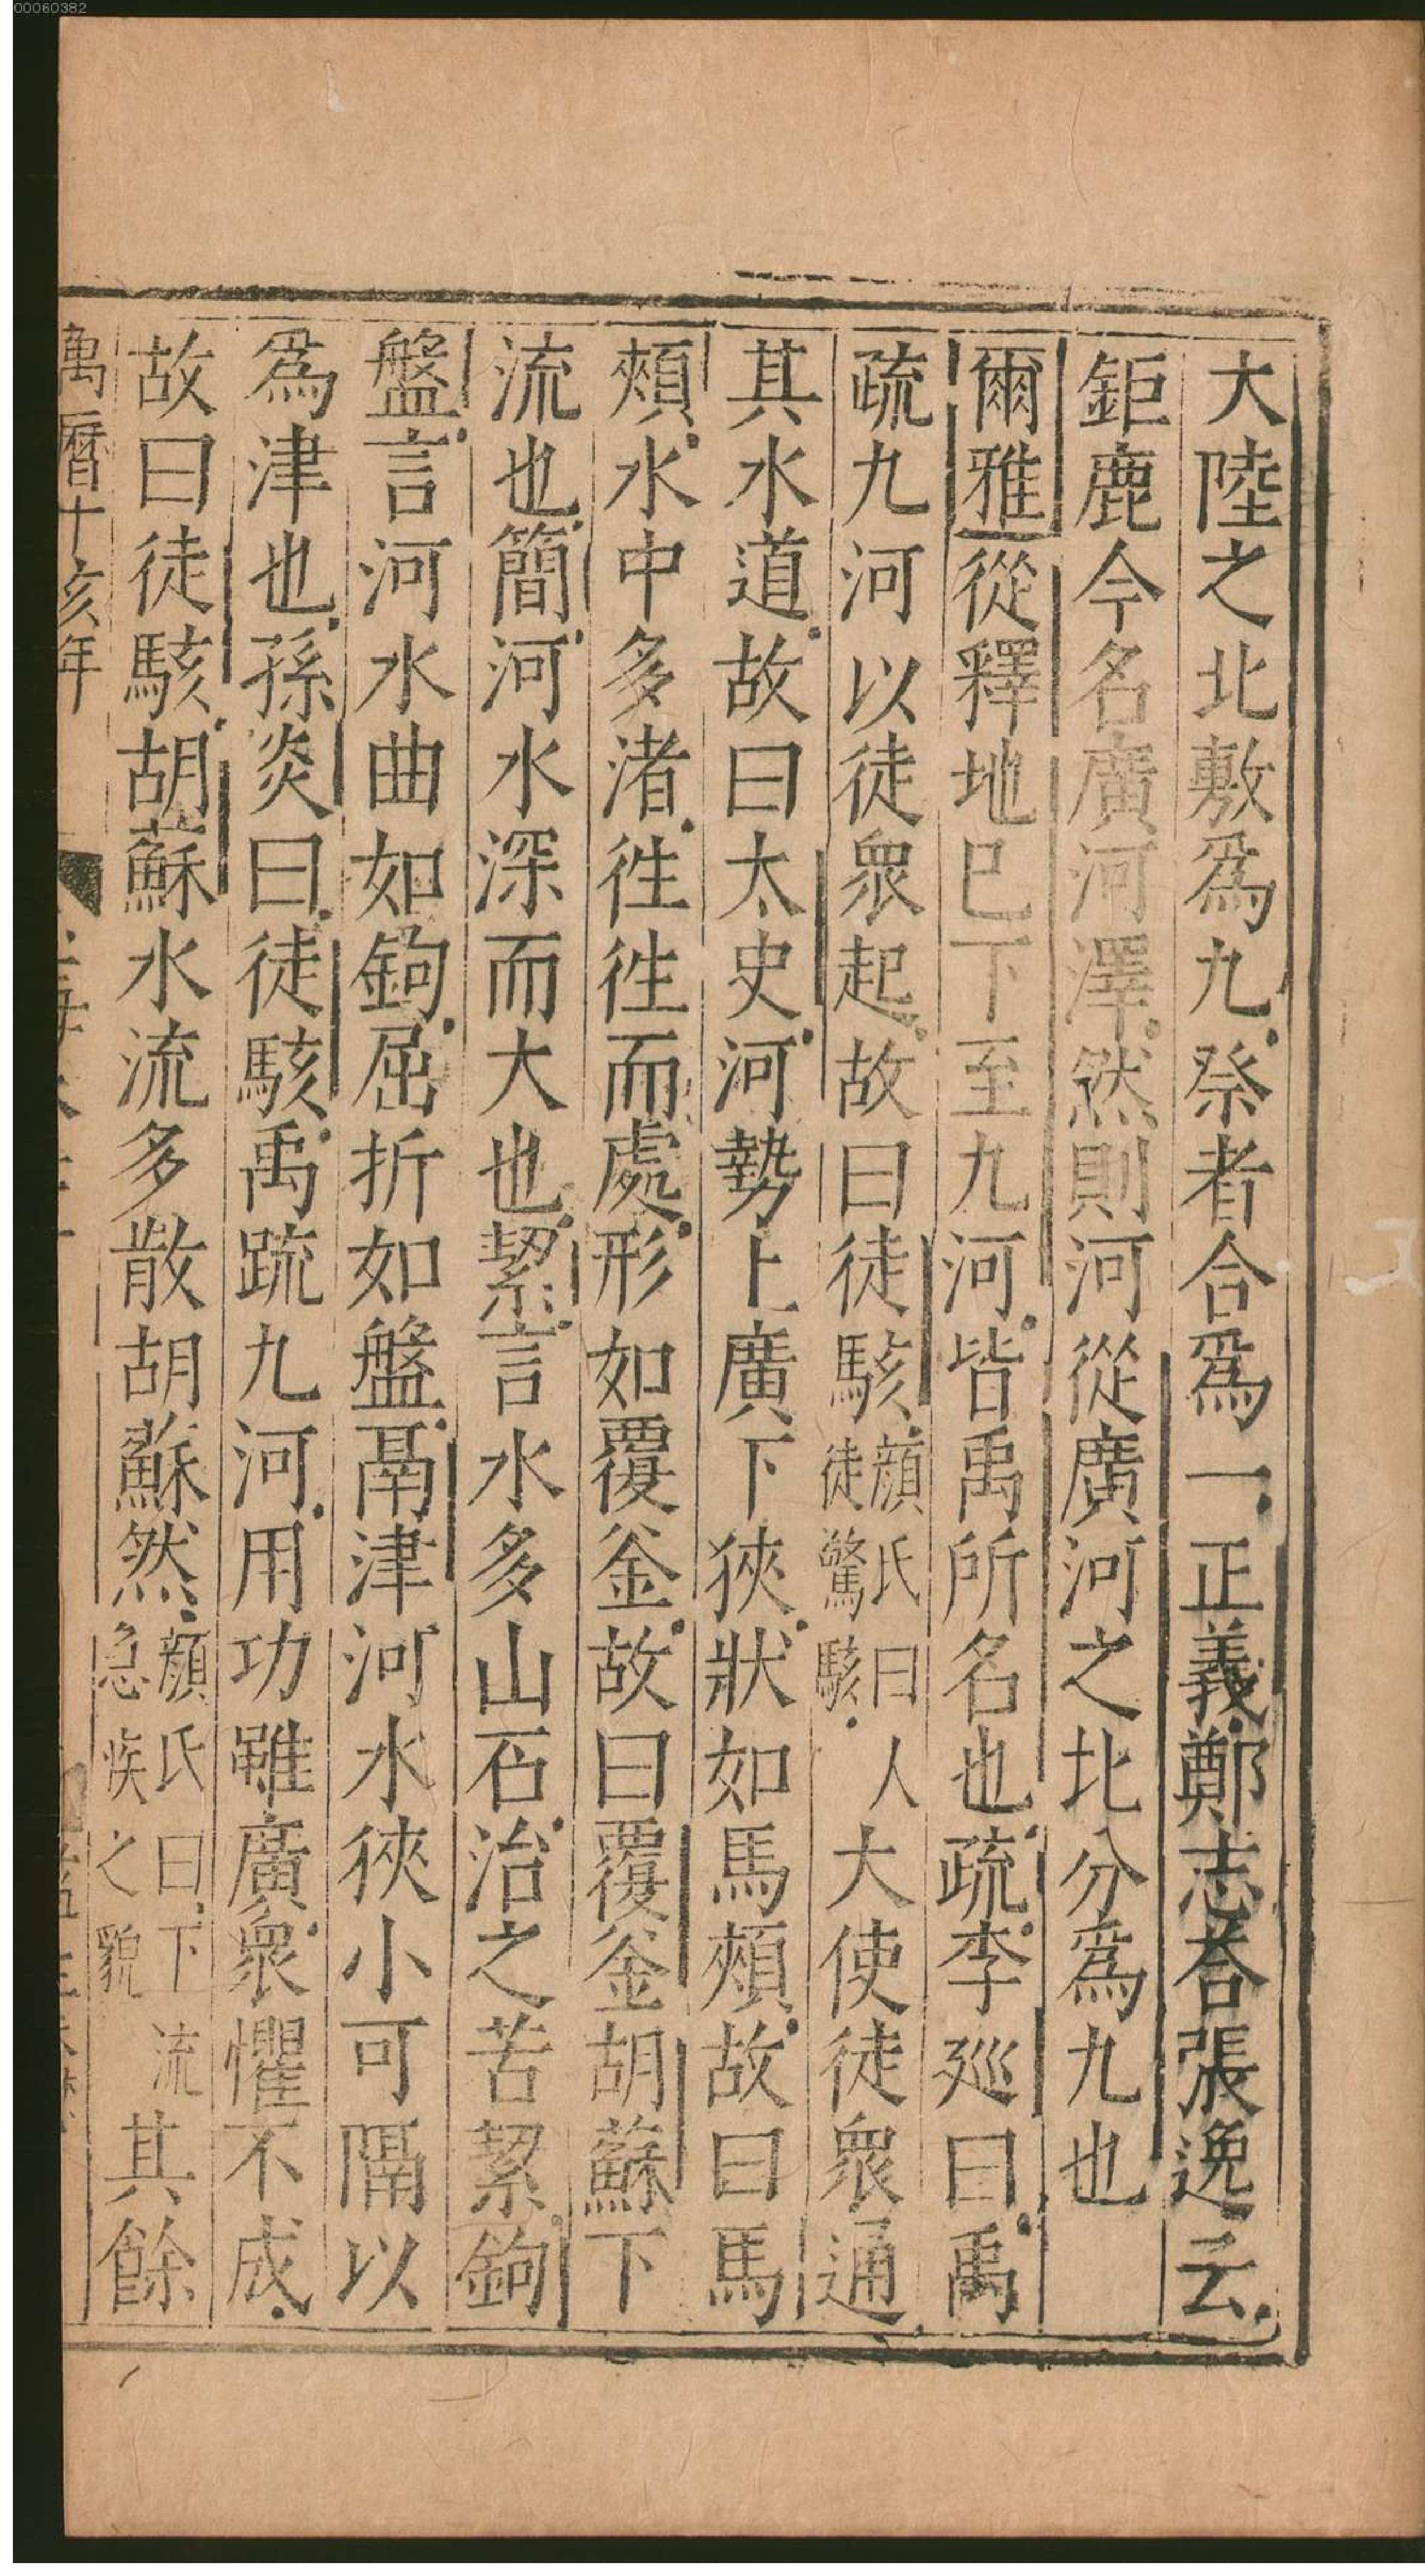 00060382
大陸之北敷爲九祭者合爲一正義鄭志荅張逸云
鉅鹿今名廣河澤然則河從廣河之北分爲九也
爾雅從釋地巳下至九河皆禹所名也疏李廵曰禹
疏九河以徒衆起故曰徒駭顔氏曰人徒驚駭大使徒衆通
其水道故曰太史河勢上廣下狹狀如馬頰故曰馬
頰水中多渚徃徃而處形如覆釜故曰覆釜胡蘇下
流也簡河水深而大也絜言水多山石治之苦絜鉤
盤言河水曲如鉤屈折如盤鬲津河水狹小可隔以
爲津也孫炎曰徒駭禹疏九河用功雖廣衆懼不成
故曰徒駭胡蘇水流多散胡蘇然顔氏曰下流急疾之貌其餘
萬曆十亥年